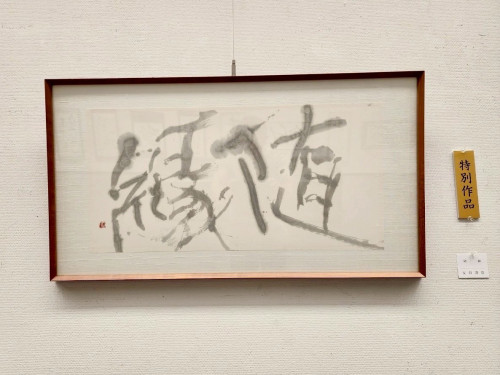 随縁
特別作品